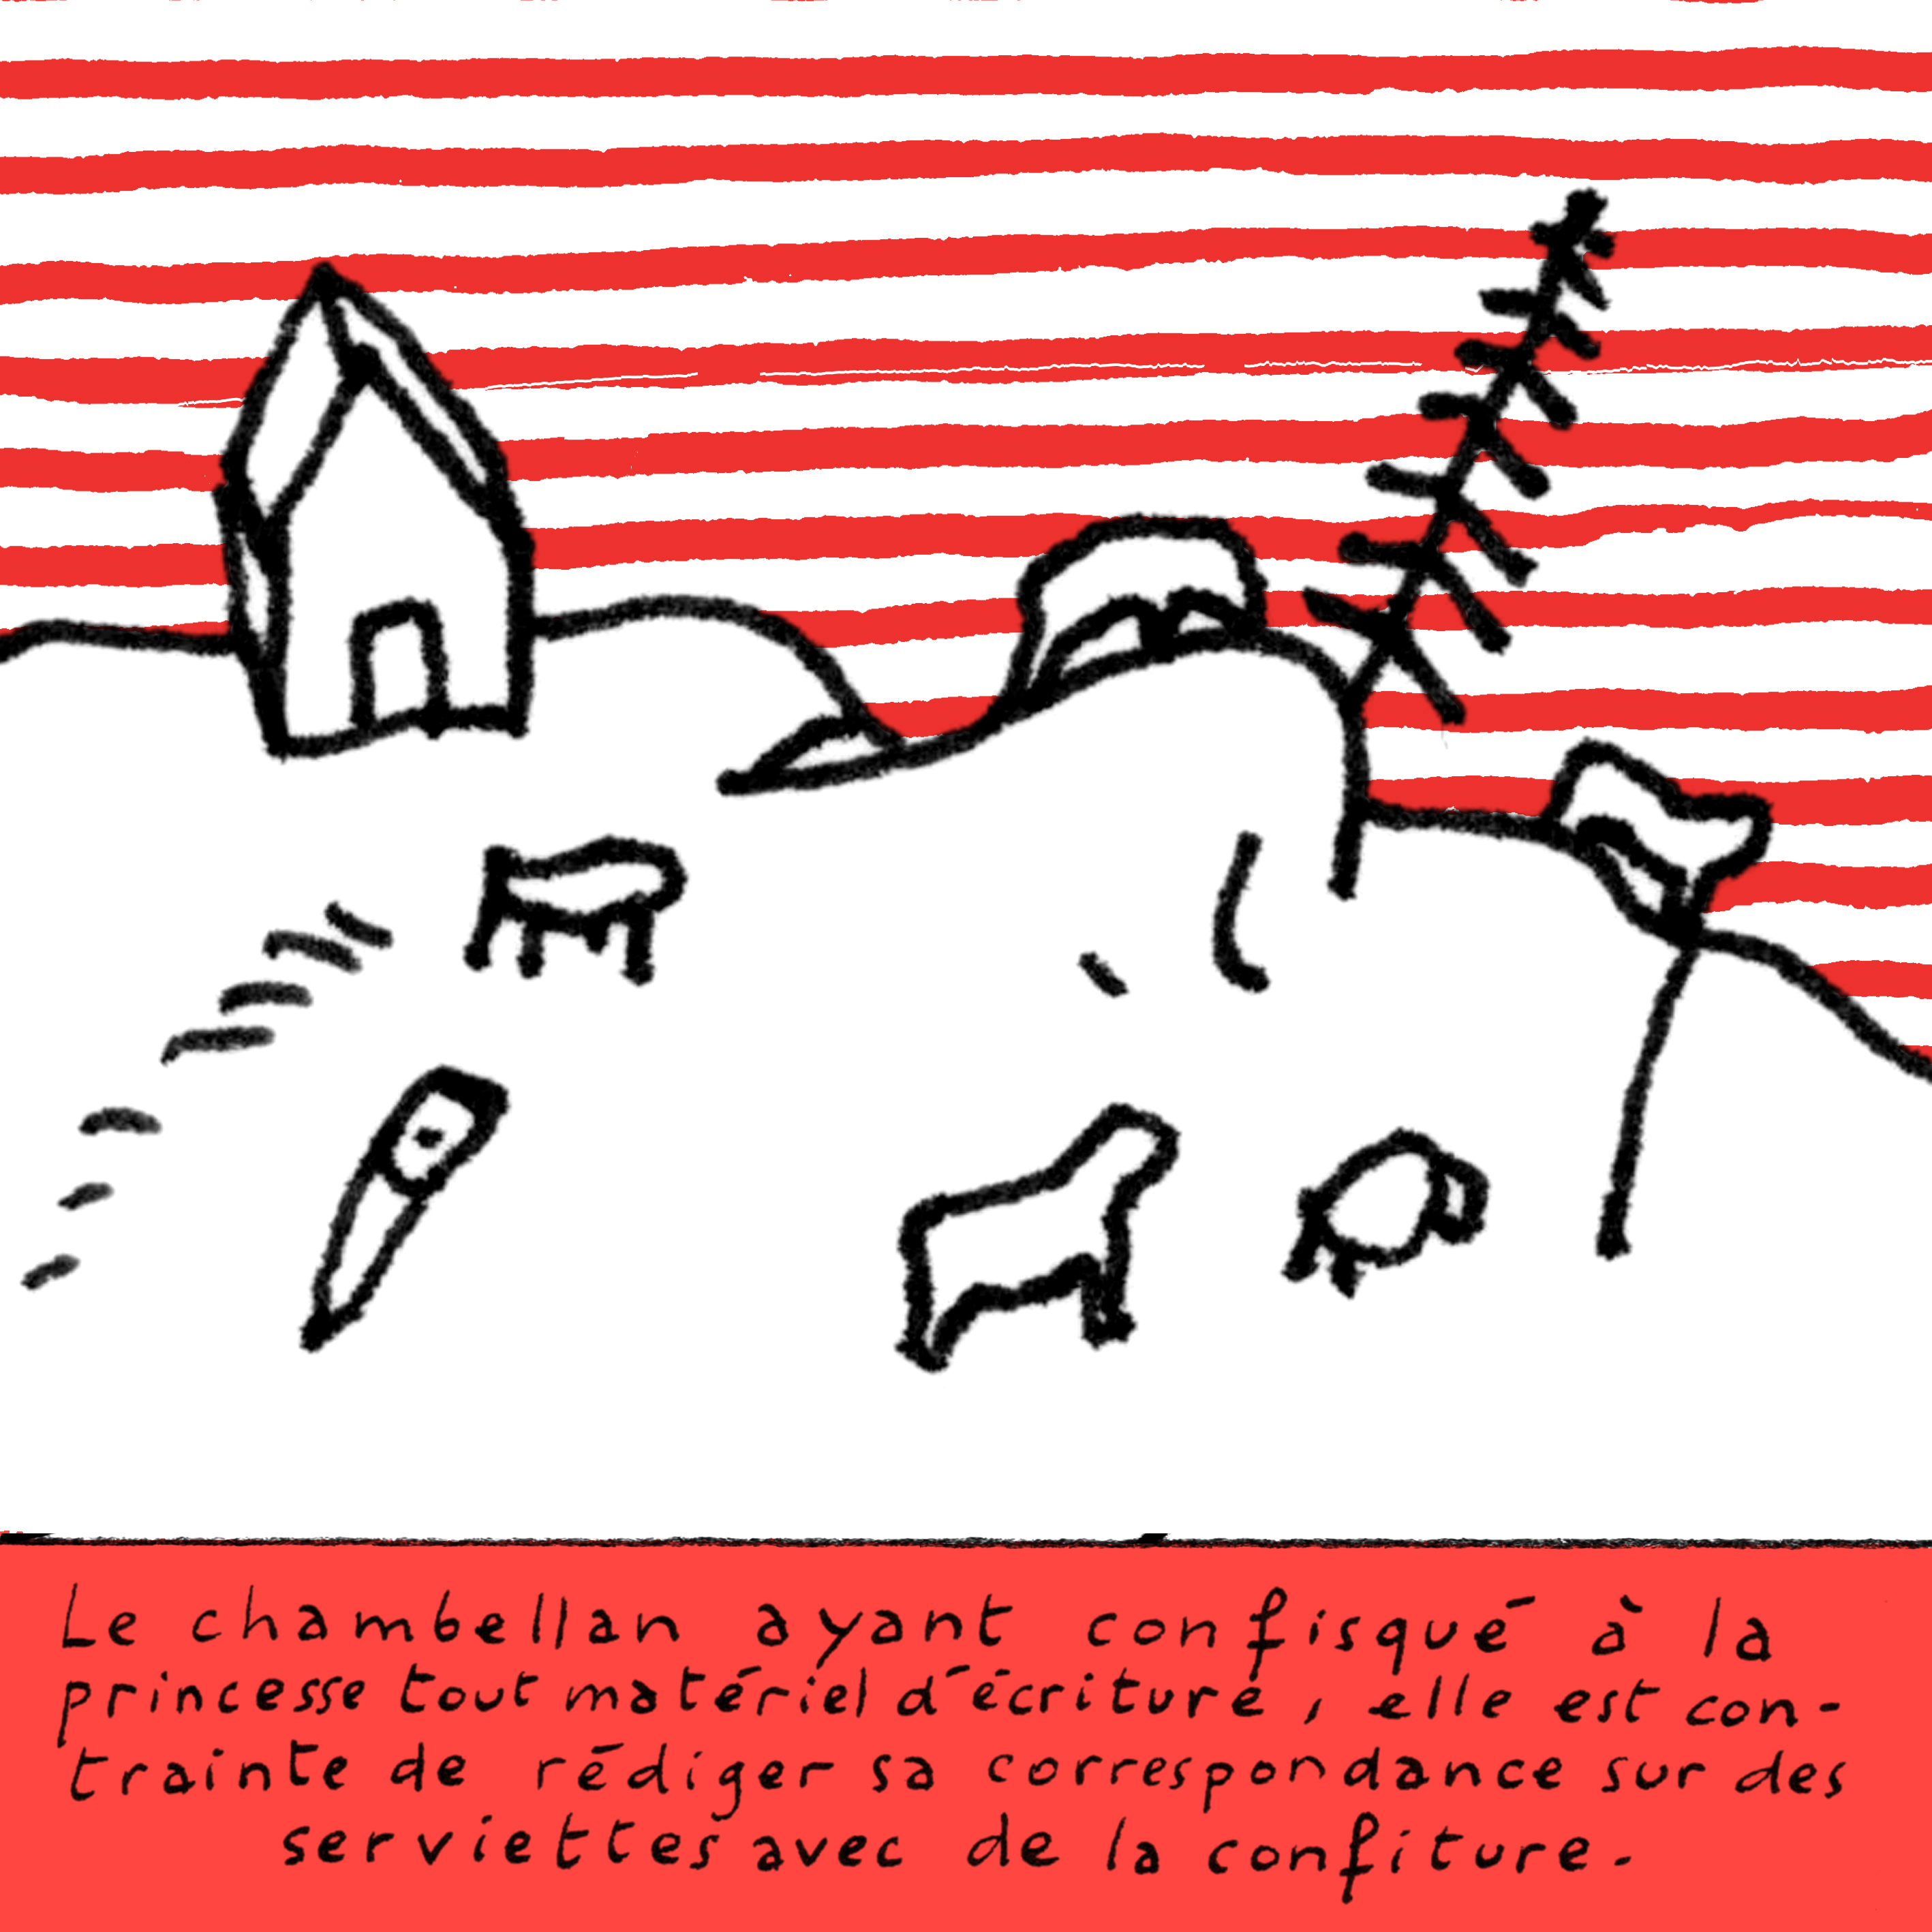 Le chambellan ayant confisqué à la
princesse tout matériel d'écriture, elle est con-
trainte de rédiger sa correspondance sur des
serviettes avec de la confiture.